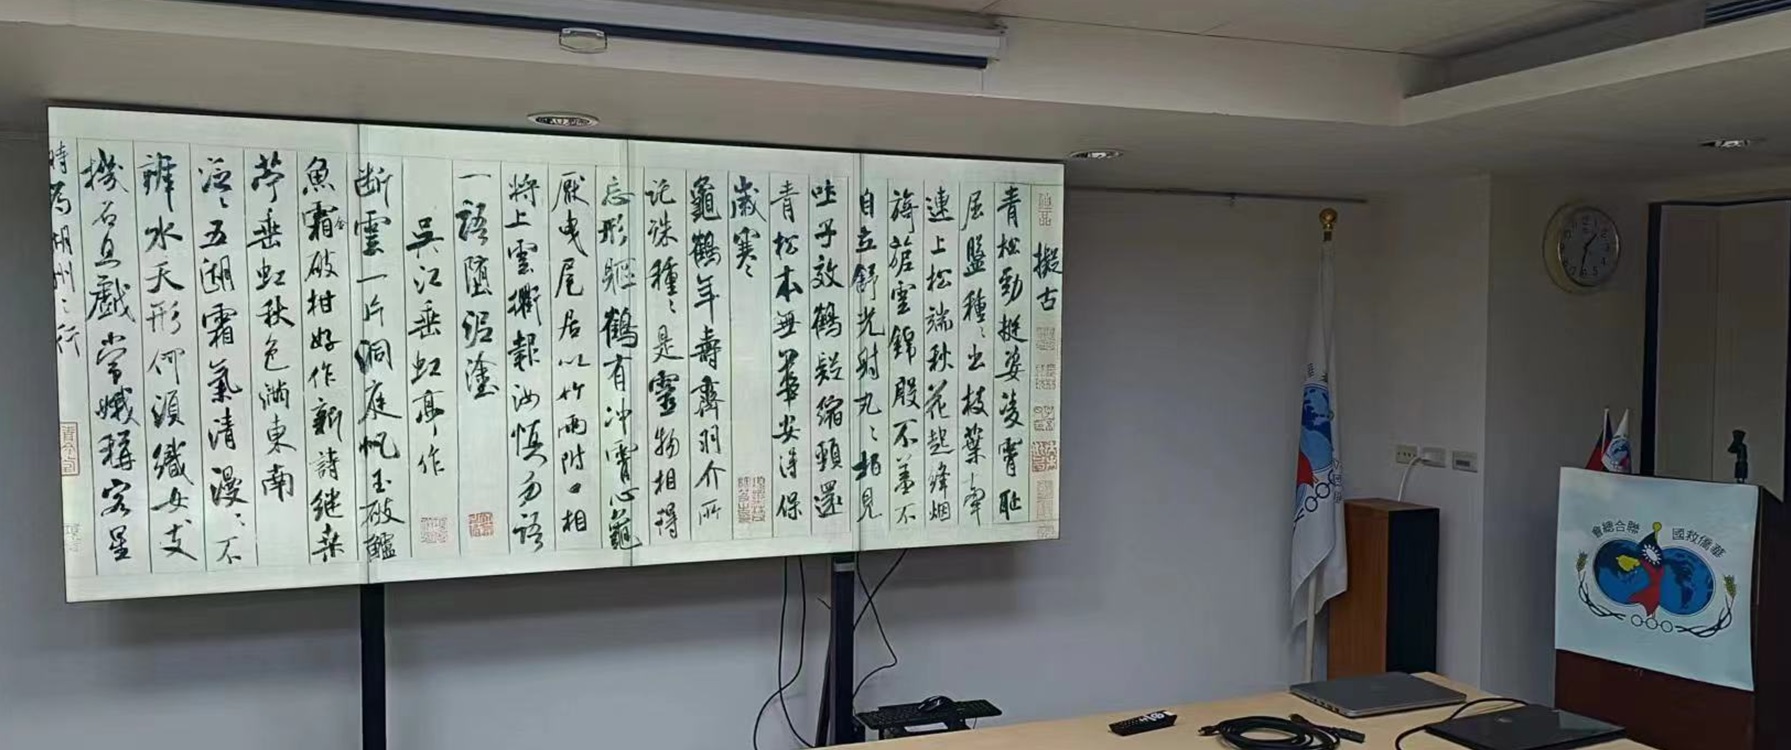 擬古
青松勁挺姿凌霄恥
屈盤種〻出枝葉牽
連上松端秋花起絳烟
旖旎雲錦殷不羞不
自立舒光射丸〻栢見
吐子效鶴疑縮頸還
青松本無華安得保
歲寒〻
龜鶴年壽齊羽介所
託殊種〻是靈物相得
忘形軀鶴有冲霄心龜
厭曳尾居以竹兩附口相
將上雲衢報汝慎勿語
一語墮泥塗
吳江垂虹亭作
斷雲一片洞庭帆玉破鱸
魚霜金破柑好作新詩繼桑
苧垂虹秋色滿東南
泛〻五湖霜氣清漫〻不
辨水天形何須織女支
機石且戲常娥稱客星
時為湖州之行
華僑救國聯合總會